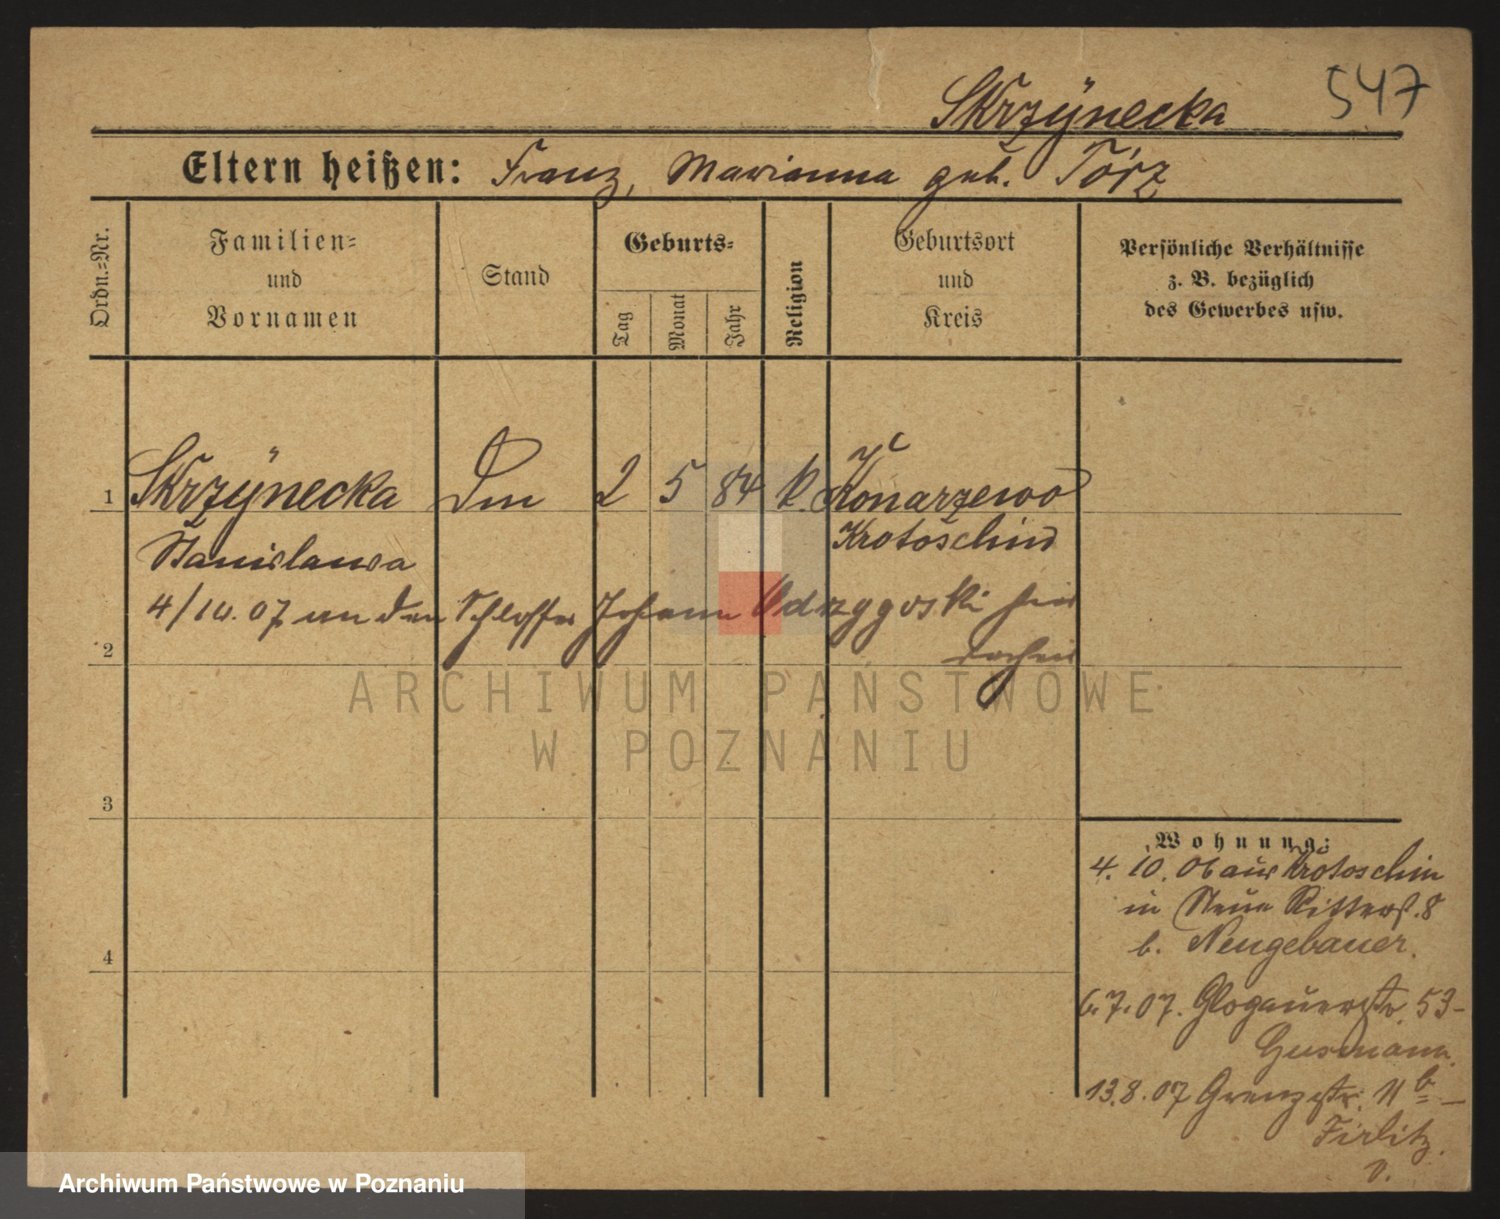 547
Skrzÿnecka
Eltern heißen: Franz, Marianna geb. Törz
Ordn.=Nr.
Familien=
und
Vornamen
Stand
Geburts=
Tag
Monat
Jahr
Religion
Geburtsort
und
Kreis
Persönliche Verhältnisse
z. B. bezüglich
des Gewerbes usw.
1 Skrzÿnecka 2 5 84 k. Konarzewo
Stanislawa Krotoschin
4/10. 07 an den Schlosser Johann Odrzygoski hier
2
3
4
Wohnung:
4. 10. 06 aus Krotoschin
in Neue Ritterst. 8
b. Neugebauer.
6. 7. 07. Glogauerstr. 53-
13. 8. 07 Grenzstr. 11 b -
Firlitz.
ARCHIWUM PAŃSTWOWE
W POZNANIU
Archiwum Państwowe w Poznaniu